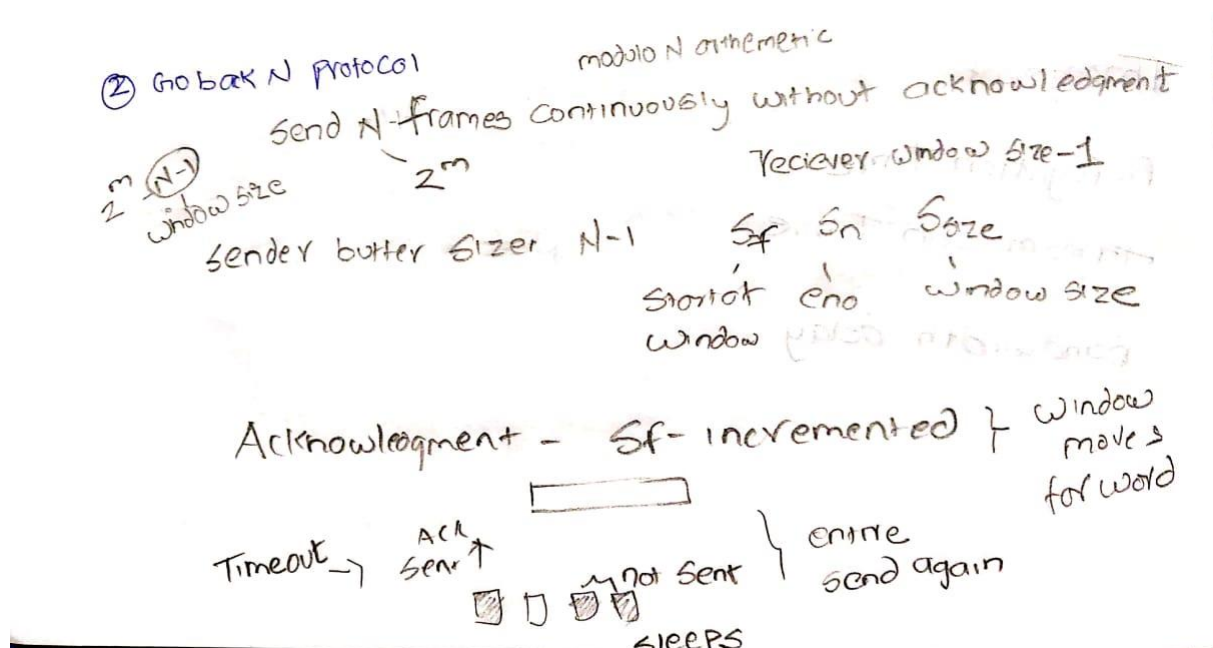 ② Go bak N Protocol
modulo N arthemetic
Send N-frames continuously without acknowledgment
2^m
Yeciever window size-1
2^m N-1
window size
Sender butter sizer N-1
Sf Sn Ssize
Stortot eno window size
window
Acknowledgment - Sf- incremented } window
moves
forword
Timeout → ACK
sent ↑
not sent } entire
send again
sleeps